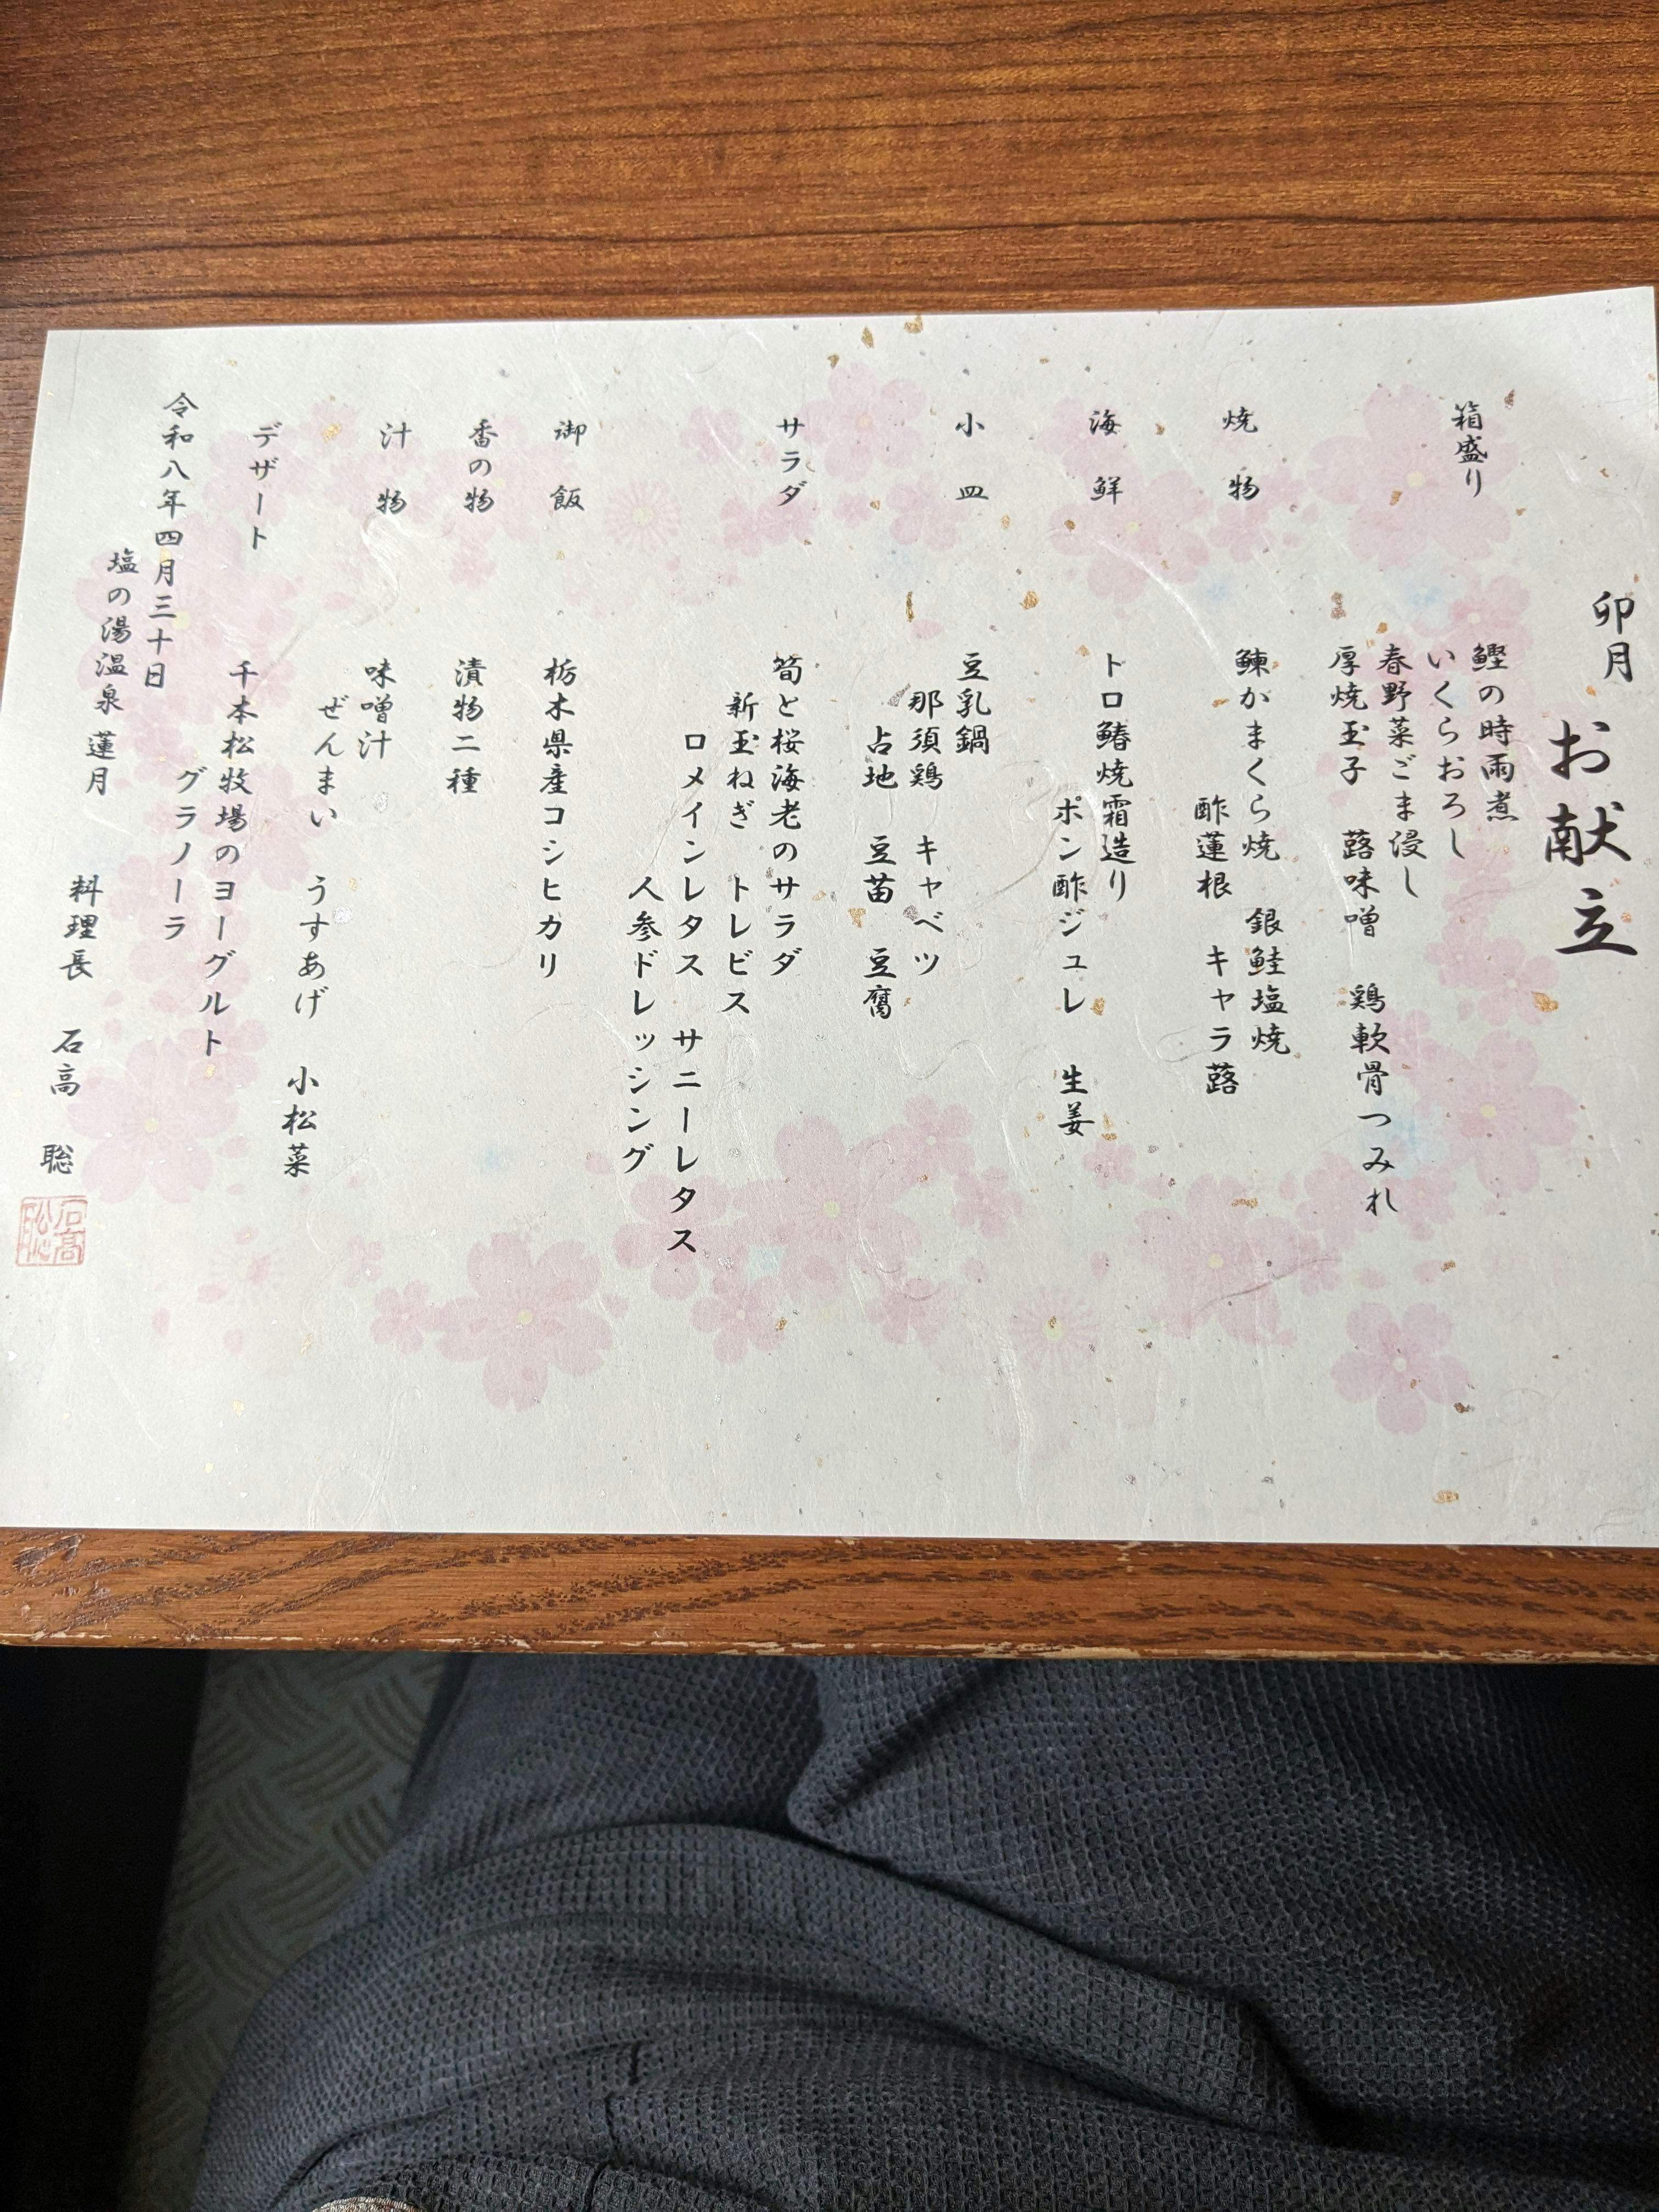 卯月 お献立
箱盛り 鰹の時雨煮
いくらおろし
春野菜ごま浸し
厚焼玉子 蕗味噌 鶏軟骨つみれ
焼物 鰊がまくら焼 銀鮭塩焼
酢蓮根 キャラ蕗
海鮮 トロ鰆焼霜造り
ポン酢ジュレ 生姜
小皿 豆乳鍋
那須鶏 キャベツ
占地 豆苗 豆腐
サラダ 筍と桜海老のサラダ
新玉ねぎ トレビス
ロメインレタス サニーレタス
人参ドレッシング
御飯 栃木県産コシヒカリ
香の物 漬物二種
汁物 味噌汁
ぜんまい うすあげ 小松菜
デザート 千本松牧場のヨーグルト
グラノーラ
令和八年四月三十日
塩の湯温泉 蓮月 料理長 石高 聡
石高聡